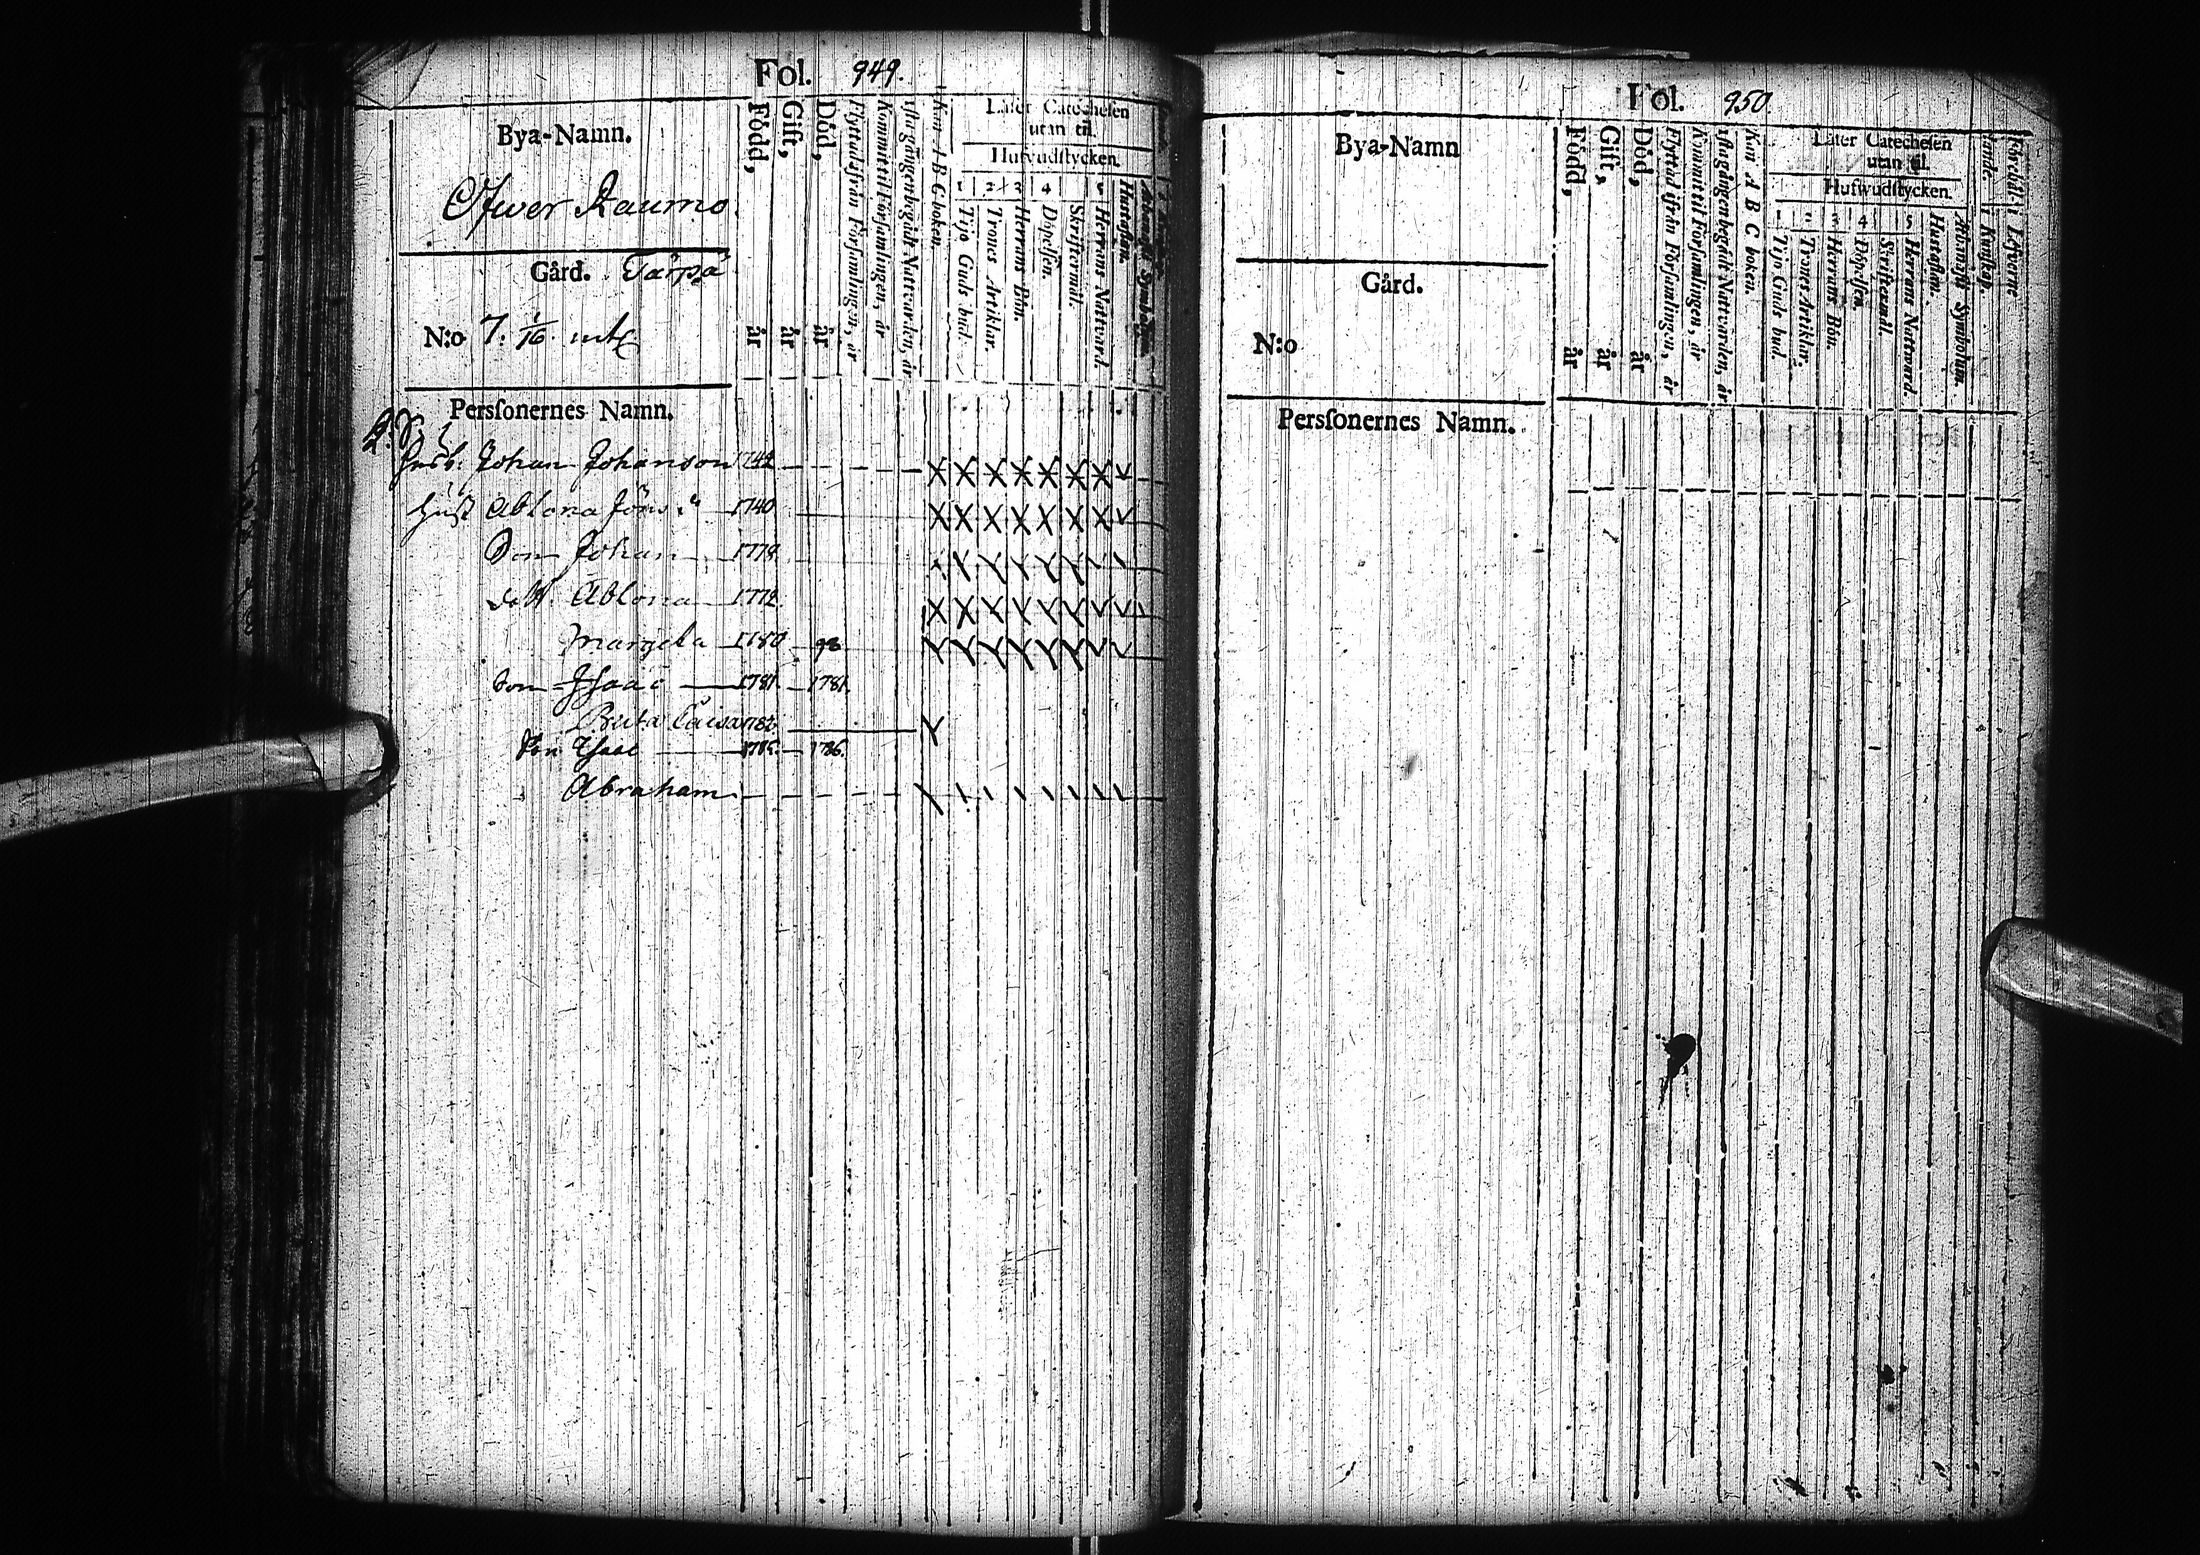 Fol. 949.
Bya-Namn.
Ofwer Raumo
Gård. Tärpä
N:o 7. 1/16. mtl
Född, år
Gift, år
Död, år
Flyttad ifrån Församlingen, år
Kommit til Församlingen, år
1sta gången begådt Nattvarden, år
Kan A B C boken.
Låter Catechesen utan til.
Hufvudstycken.
1 2 3 4 5
Tijo Guds bud.
Trones Artiklar.
Herrans Bön.
Döpelsen.
Skriftermål.
Herrans Nattvard.
Hustaflan.
Personernes Namn.
Husb: Johan Johanson 1742
Hust Ablona Jöns d: 1740
Son Johan 1778
dott. Ablona 1772
Margeta 1780 98
Son Isaac 1781 1781
Brita Caisa 1782
Son Isaac 1785 1786.
Abraham
Fol. 950.
Bya-Namn
Gård.
N:o
Född, år
Gift, år
Död, år
Flyttad ifrån Församlingen, år
Kommit til Församlingen, år
1sta gången begådt Nattvarden, år
Kan A B C boken.
Låter Catechesen utan til.
Hufwudstycken.
1 2 3 4 5
Tijo Guds bud.
Trones Artiklar.
Herrans Bön.
Döpelsen.
Skriftermål.
Herrans Nattward.
Hustaflan.
Athanasii Symbolum.
i Kunskap.
i Lefverne
Personernes Namn.